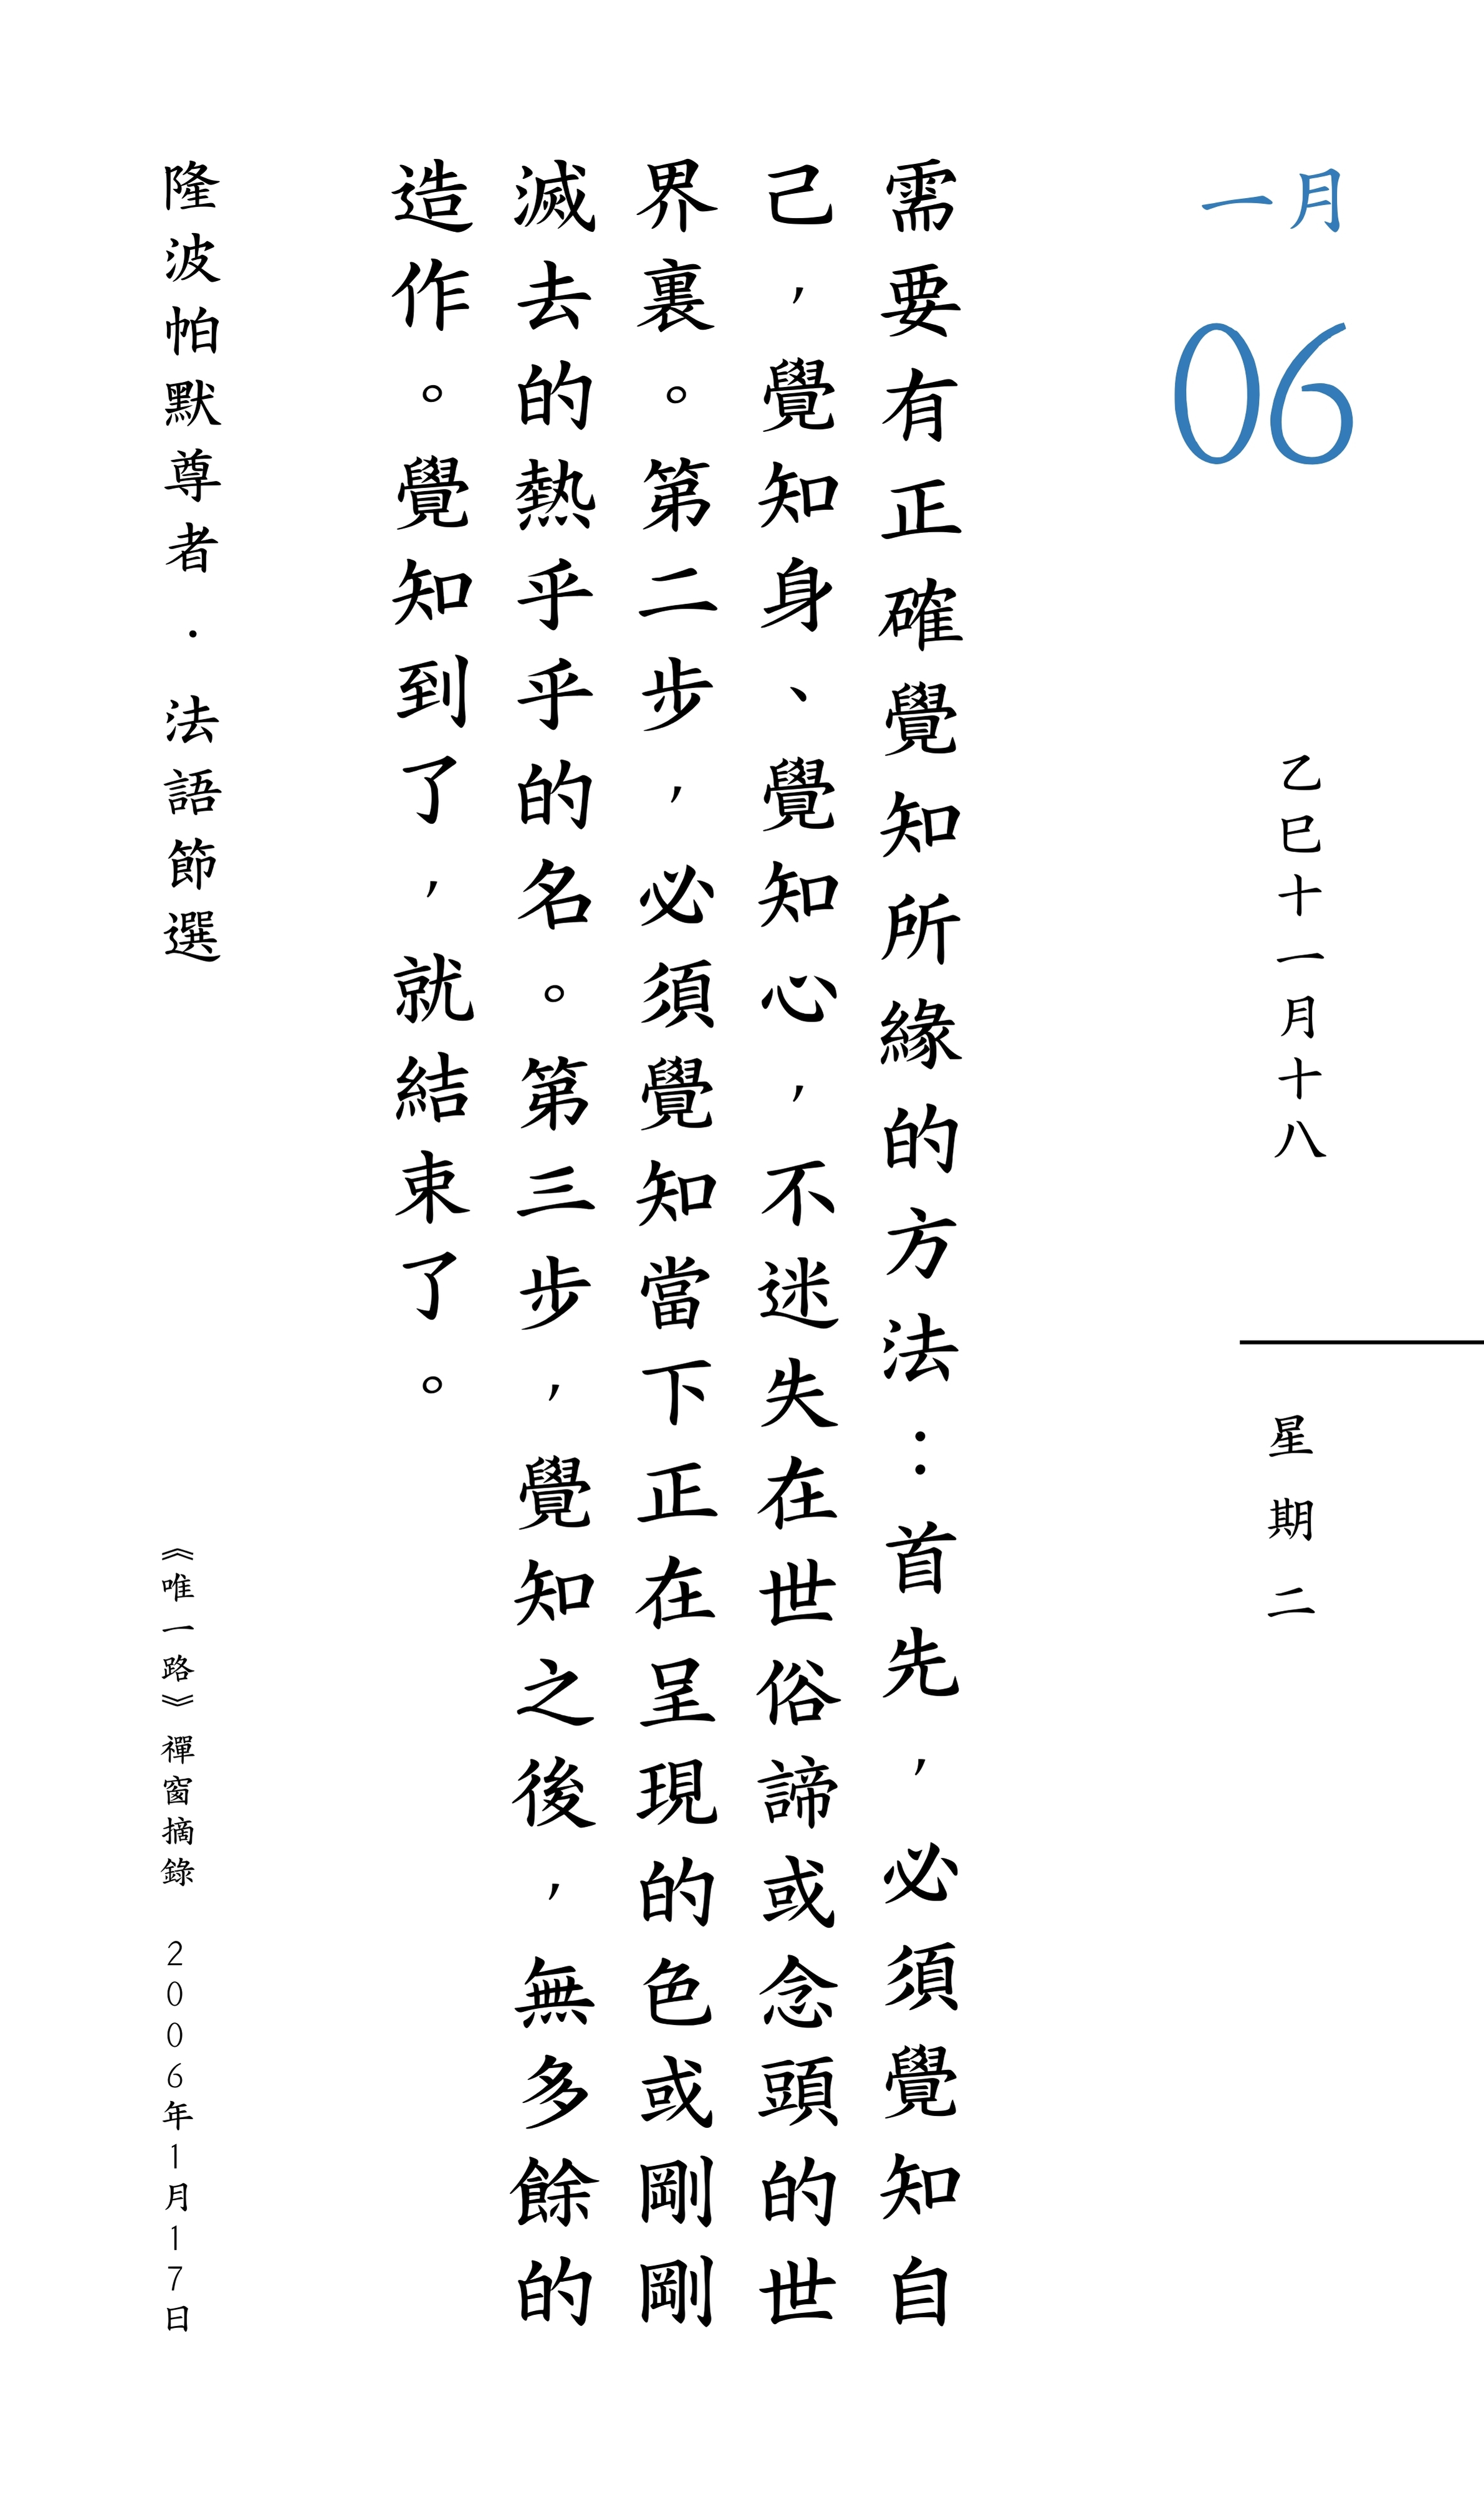 一月
06
乙巳十一月十八
星期二
需要有正確覺知所緣的方法：首先，必須覺知自
己，覺知身、覺知心，不迷失在世俗諦或念頭的世
界裏。第二步，必須覺知當下正在呈現的色或剛剛
滅去的熱乎乎的名。第三步，覺知之後，無多餘的
造作。覺知到了，就結束了。
隆波帕默尊者．法語節選
《唯一路》禪窗摘錄 2006年1月17日